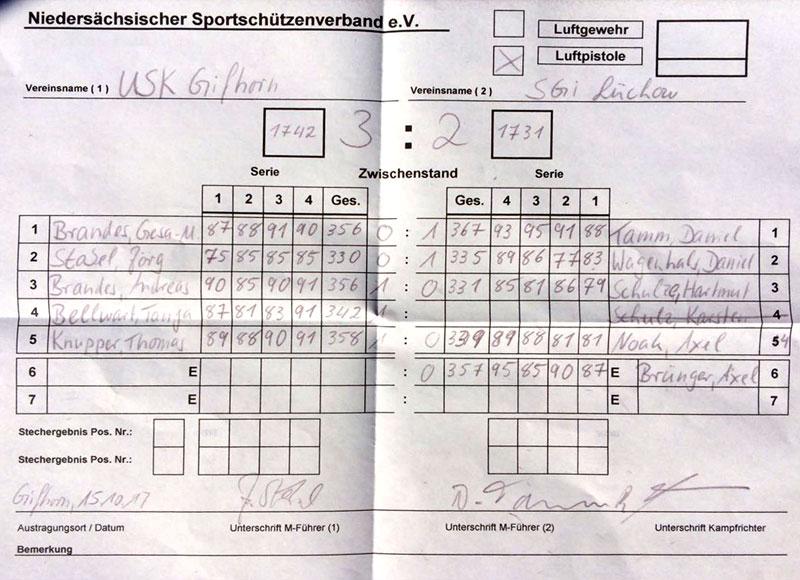 Niedersächsischer Sportschützenverband e.V.
Luftgewehr
X Luftpistole
Vereinsname ( 1 ) USK Gifhorn Vereinsname ( 2 ) SGi Lüchow
1742 3 : 2 1731
Serie Zwischenstand Serie
1 2 3 4 Ges. Ges. 4 3 2 1
1 Brandes, Gesa-M 87 88 91 90 356 0 : 1 367 93 95 91 88 Tamm, Daniel 1
2 Staßel, Jörg 75 85 85 85 330 0 : 1 335 89 86 77 83 Wagenhals, Daniel 2
3 Brandes, Andreas 90 85 90 91 356 1 : 0 331 85 81 86 79 Schulze, Hartmut 3
4 Bellwart, Tanja 87 81 83 91 342 1 : Schulz, Karsten 4
5 Knupper, Thomas 89 88 90 91 358 1 : 0 339 89 88 81 81 Noah, Axel 5 4
6 E : 0 357 95 85 90 87 E Brünger, Axel 6
7 E : E 7
Stechergebnis Pos. Nr.:
Stechergebnis Pos. Nr.:
Gifhorn, 15.10.17
Austragungsort / Datum Unterschrift M-Führer (1) Unterschrift M-Führer (2) Unterschrift Kampfrichter
Bemerkung